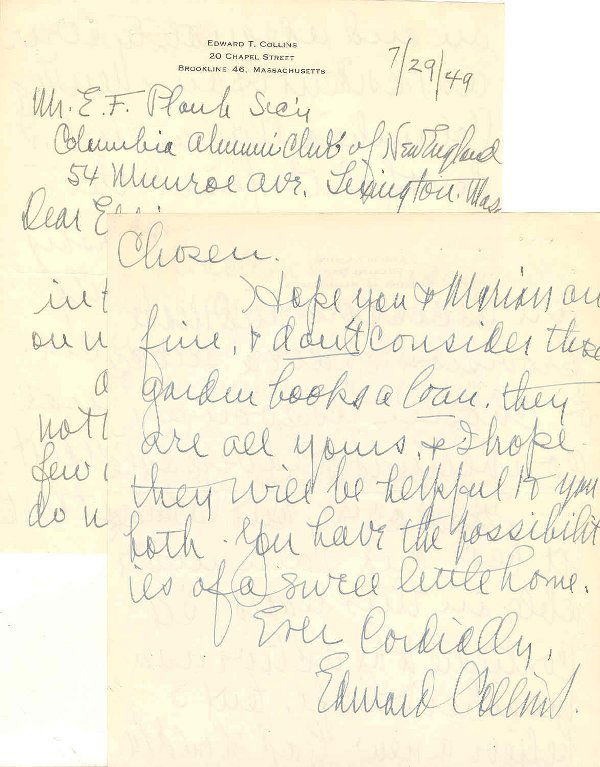 EDWARD T. COLLINS
20 CHAPEL STREET
BROOKLINE 46, MASSACHUSETTS
7/29/49
Mr. E. F. Plank Sec'y
Columbia Alumni Club of New England
54 Munroe Ave. Lexington. Mass
Dear
in
on
not
few
do
Chosen.
Hope you & Marion
fine, & don't consider those
garden books a loan. they
are all yours, & I hope
they will be helpful to you
both. You have the possibilit
ies of a swell little home.
Ever Cordially,
Edward Collins.